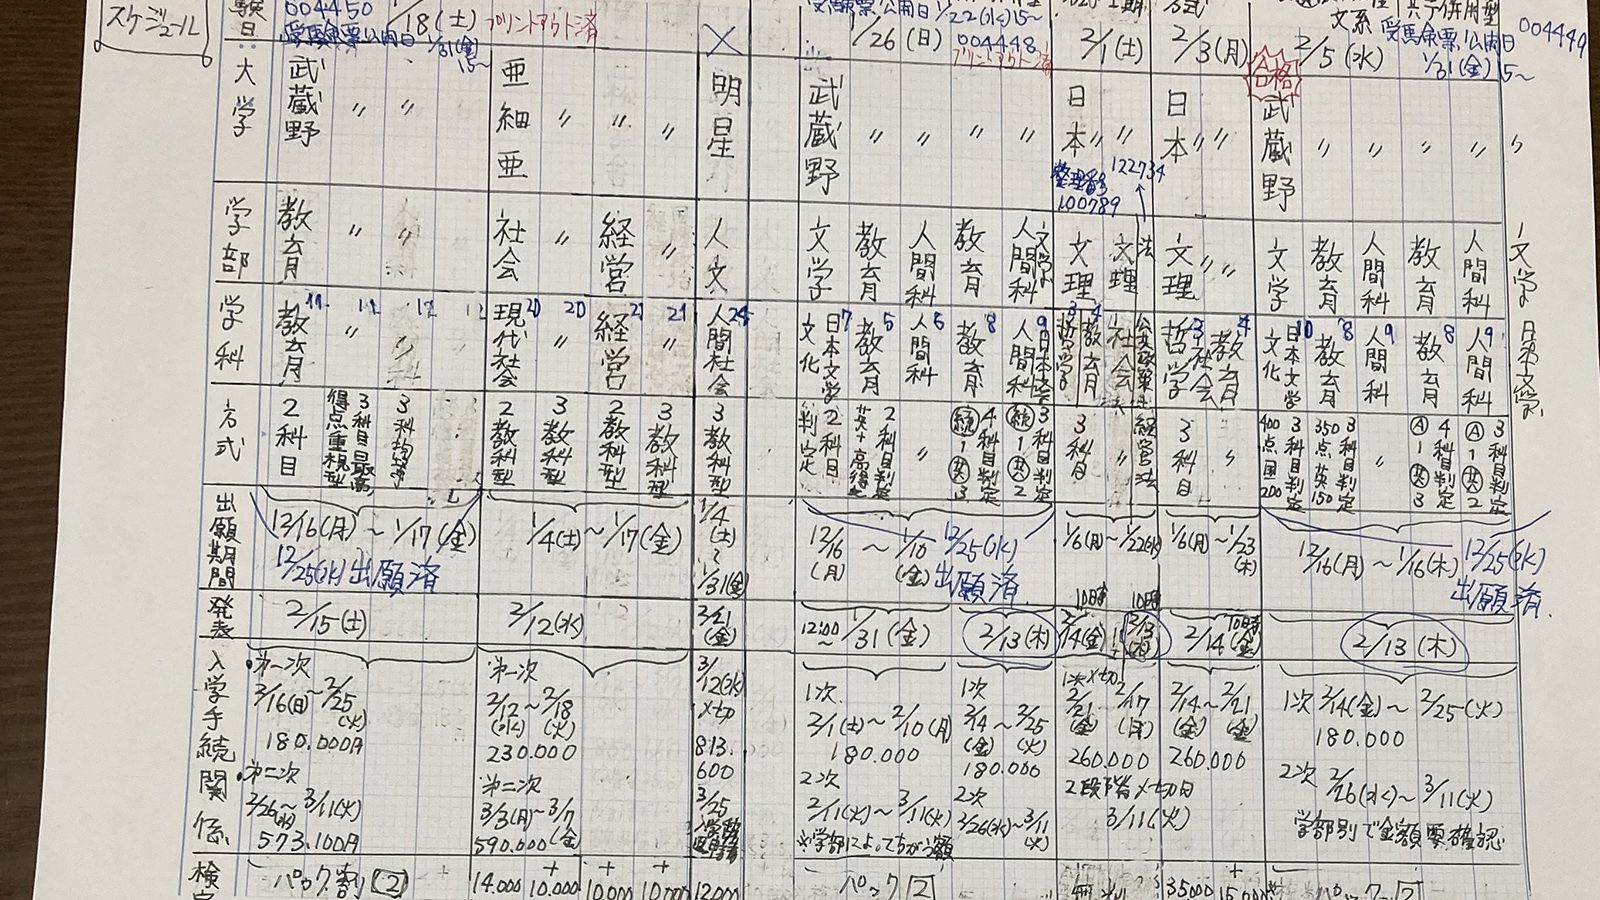 スケジュール
験日 004450 1/18(土) プリントアウト済 受験票公開日1/22(水)15～ 文系 受験票公開日 004449
受験票公開日 1/31(金)15～ × 1/26(日) 004448 プリントアウト済 2/1(土) 2/3(月) 合格 2/5(水) 1/31(金)15～
大学 武蔵野 〃 〃 亜細亜 〃 〃 〃 明星 武蔵野 〃 〃 〃 〃 日本 〃 〃 日本 〃 〃 武蔵野 〃 〃 〃 〃 〃
整理番号 100789 122734
学部 教育 〃 〃 社会 〃 経営 〃 人文 文学 教育 人間科 教育 人間科 文学 文理 文理 法 文理 〃 〃 文学 教育 人間科 教育 人間科 文学
学科 教育 11 〃 11 12 12 現代社会 20 〃 20 経営 21 〃 21 人間社会 24 日本文学文化 7 教育 5 人間科 6 教育 8 人間科 9 哲学 3 教育 4 社会 哲学 3 社会 教育 4 日本文学文化 10 教育 8 人間科 9 教育 8 人間科 9 日本文学
方式 2科目 3科目最高得点重視型 3科均等 2教科型 3教科型 2教科型 3教科型 3教科型 2科目判定 2科目判定 英+高得点 〃 4科目判定 統1共3 3科目判定 統1共2 3科目 3科目 〃 3科目判定 400点国200 3科目判定 350点英150 〃 4科目判定 A1共3 3科目判定 A1共2
出願期間 12/16(月)～1/17(金) 1/4(土)～1/17(金) 1/4(土)～1/31(金) 12/16(月)～1/10(金) 12/25(水) 1/6(月)～1/22(水) 1/6(月)～1/23(木) 12/16(月)～1/16(木) 12/25(水)
12/25(水)出願済 出願済 出願済.
発表 2/15(土) 2/12(水) 2/21(金) 12:00～ 1/31(金) 2/13(木) 10時 2/14(金) 10時 2/13(木) 2/14(金) 10時 2/13(木)
入学手続関係 ・第一次 2/16(日)～2/25(火) 180.000円 第一次 2/12(水)～2/18(火) 230.000 3/12(水)〆切 813.600 1次 2/1(土)～2/10(月) 180.000 1次 2/14(金)～2/25(火) 180.000 1次〆切 2/21(金) 2/17(月) 260.000 2/14(金)～2/21(金) 260.000 1次 2/14(金)～2/25(火) 180.000
・第二次 2/26(水)～3/11(火) 573.100円 第二次 3/3(月)～3/7(金) 590.000 3/25 2次 2/11(火)～3/11(火) ※学部によってちがう額 2次 2/26(水)～3/11(火) 2段階〆切日 3/11(火) 2次 2/26(水)～3/11(火) 学部別で金額要確認
検定 パック割 2 14.000 + 10.000 + 10.000 + 10.000 12.000 パック 2 無料 35000 + 15.000 パック 2